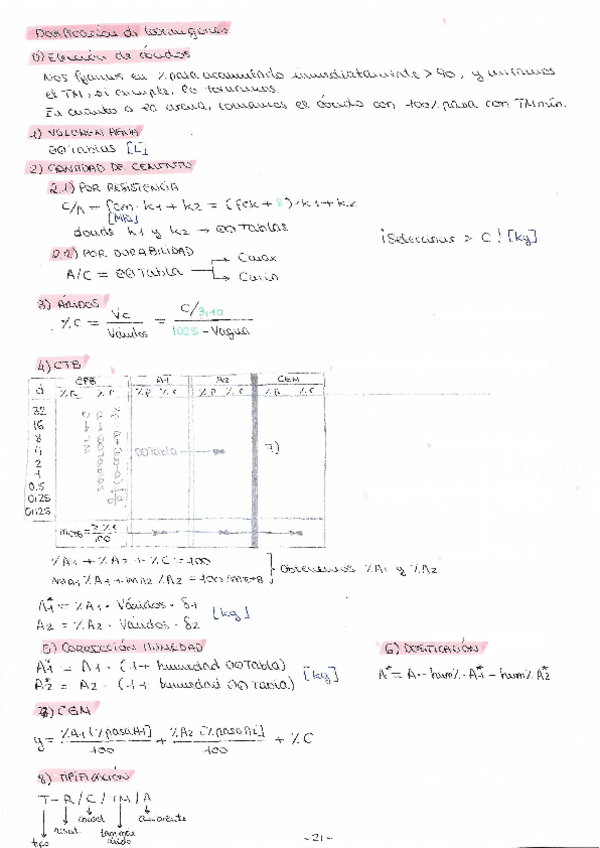 Dosificación de hormigones
0) Elección de áridos
Nos fijamos en % pasa acumulado inmediatamente > 90, y miramos
el TM, si cumple, lo tomamos.
En cuanto a la arena, tomamos el árido con 100% pasa con TM mín.
1) VOLUMEN AGUA
Tablas [L]
2) CANTIDAD DE CEMENTO
2.1) POR RESISTENCIA
C/A = fcm · k1 + k2 = (fck + 8) · k1 + k2
[MPa]
donde k1 y k2 → Tablas
¡Seleccionar > C! [kg]
2.2) POR DURABILIDAD
A/C = Tabla → Cmáx
→ Cmín
3) ÁRIDOS
%C = Vc / Váridos = C/3,10 / 1025 - Vagua
4) CTB
CPB A1 A2 CEM
d %R %C %R %C %R %C %R %C
32
16
8
4 Tabla 7)
2
1
0.5
0.25
0.125
mCTB = Σ%R / 100
%A1 + %A2 + %C = 100
mA1 %A1 + mA2 %A2 = 100 mCTB
Obtenemos %A1 y %A2
A1 = %A1 · Váridos · δ1
A2 = %A2 · Váridos · δ2
[kg]
5) CORRECCIÓN HUMEDAD
A1* = A1 · (1 + humedad Tabla)
A2* = A2 · (1 + humedad Tabla)
[kg]
6) DOSIFICACIÓN
A* = A - hum% · A1* - hum% A2*
7) CEM
y = %A1 [%pasa A1] / 100 + %A2 [%pasa A2] / 100 + %C
8) TIPIFICACIÓN
T - R / C / TM / A
tipo resist. consist. tam máx árido ambiente
- 21 -